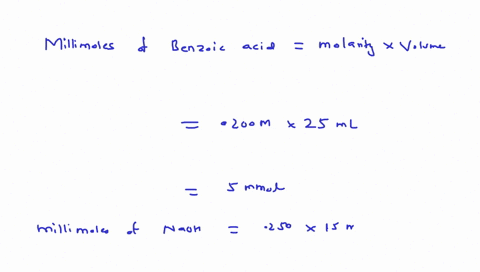 Millimoles of Benzoic acid = molarity × Volume
= .200 M × 25 mL
= 5 mmol
Millimoles of NaOH = .250 × 15 m